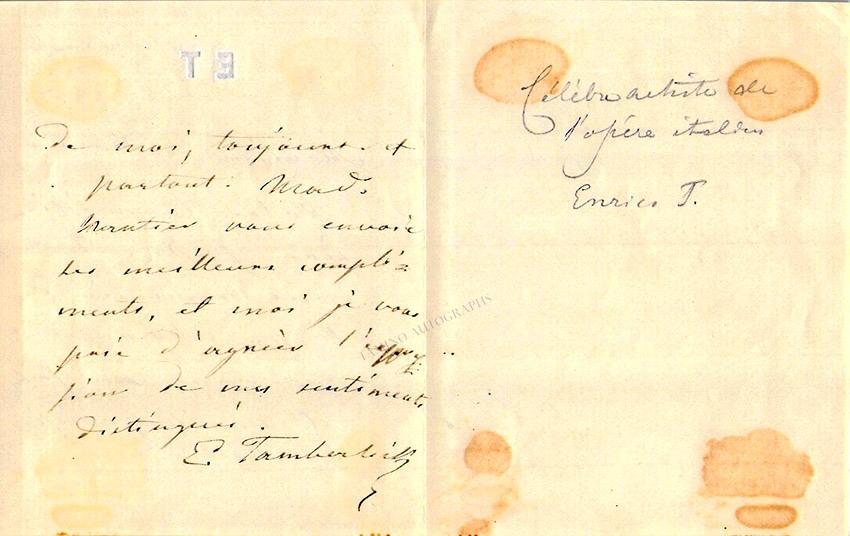 ET
De moi, toujours et
partout. Mad.
vous envoie
ses meilleurs complé=
ments, et moi je vous
prie d'agréer l'expres=
sion de mes sentiments
distingués.
E. Tamberlick
Célèbre artiste de
l'opéra italien
Enrico T.
TAMINO AUTOGRAPHS